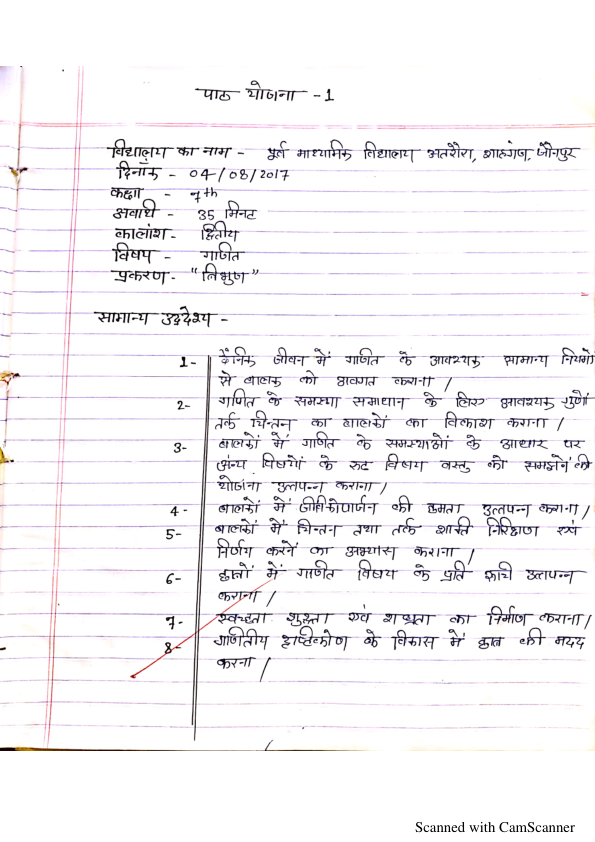 पाठ योजना -1
विद्यालय का नाम - पूर्व माध्यमिक विद्यालय अतरौरा, शाहगंज, जौनपुर
दिनांक - 04/08/2017
कक्षा - 7th
अवधि - 35 मिनट
कालांश - द्वितीय
विषय - गणित
प्रकरण - "त्रिभुज"
सामान्य उद्देश्य -
1- दैनिक जीवन में गणित के आवश्यक सामान्य नियमों
से बालक को अवगत कराना /
2- गणित के समस्या समाधान के लिए आवश्यक गुणों
तर्क चिन्तन का बालकों का विकाश कराना /
3- बालकों में गणित के समस्याओं के आधार पर
अन्य विषयों के विषय वस्तु को समझने की
योजना उत्पन्न कराना /
4- बालकों में जीविकोपार्जन की क्षमता उत्पन्न कराना /
5- बालकों में चिन्तन तथा तर्क शक्ति निरिक्षण एवं
निर्णय करने का अभ्यास कराना /
6- छात्रों में गणित विषय के प्रति रूचि उत्पन्न
कराना /
7- स्वच्छता शुद्धता एवं का निर्माण कराना /
8- गणितीय दृष्टिकोण के विकास में छात्र की मदद
करना /
Scanned with CamScanner